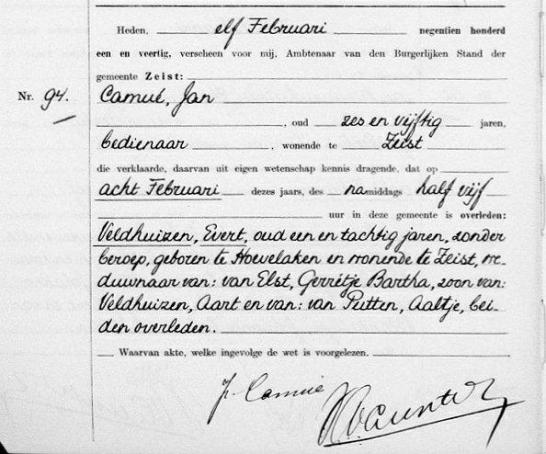 Heden, elf Februari negentien honderd
een en veertig, verscheen voor mij, Ambtenaar van den Burgerlijken Stand der
gemeente Zeist:
Nr. 94. Camué, Jan
, oud zes en vijftig jaren,
bedienaar, wonende te Zeist
die verklaarde, daarvan uit eigen wetenschap kennis dragende, dat op
acht Februari dezes jaars, des namiddags half vijf
uur in deze gemeente is overleden:
Veldhuizen, Evert, oud een en tachtig jaren, zonder
beroep, geboren te Hoevelaken en wonende te Zeist, we-
duwnaar van: van Elst, Gerretje Bartha, zoon van:
Veldhuizen, Aart en van: van Putten, Aaltje, bei-
den overleden.
Waarvan akte, welke ingevolge de wet is voorgelezen.
J. Camué